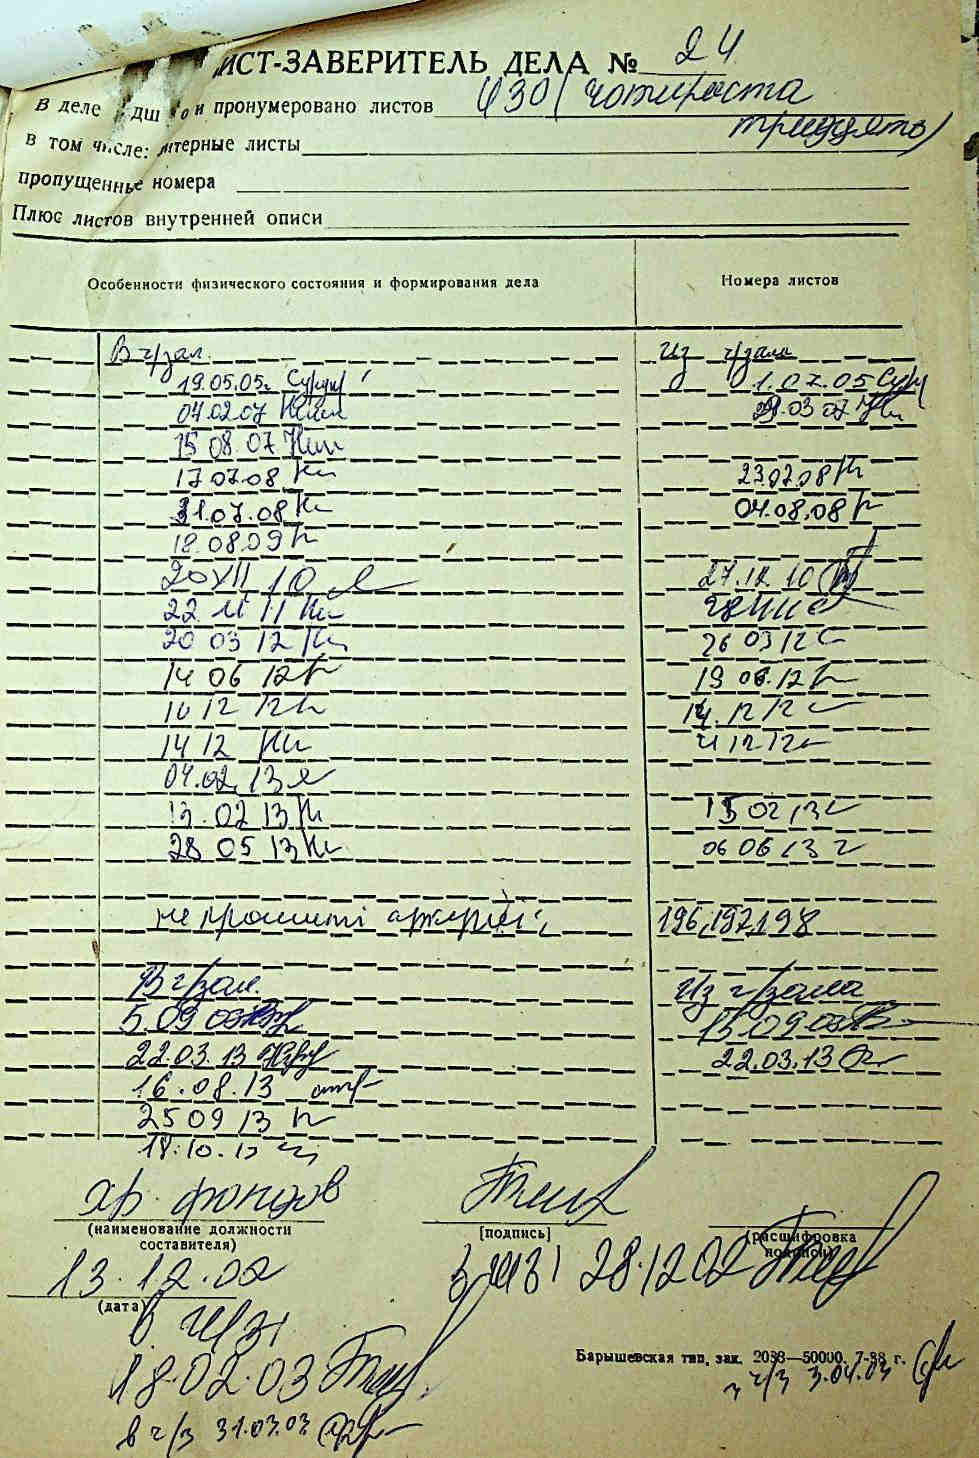 ЛИСТ-ЗАВЕРИТЕЛЬ ДЕЛА № 24
В деле и пронумеровано листов 430 (чотириста
тридцять)
в том числе: литерные листы
пропущенные номера
Плюс листов внутренней описи
Особенности физического состояния и формирования дела Номера листов
В ч/зал. Из ч/зала
19.05.05. 1.07.05
04.02.07 03 07
15 08 07
17 07 08 23.07.08
31.07.08 04.08.08
18.08.09
20 XII 10 27.12.10
22 11 11
20 03 12 26 03 12
14 06 12 19 06.12
10 12 12 14.12 12
14 12 12 12
04.02.13
13.02 13 15 02 13
28 05 13 06 06 13
не прошиті аркуші: 196,197,198
В ч/зал. Из ч/зала
5.09 13.09
22.03.13 22.03.13
16.08.13
25 09 13
18.10.13
хр. фондов
(наименование должности [подпись] (расшифровка
составителя) подписи)
13.12.02 28.12 02
(дата)
в ч/з
18.02.03
Барышевская тип. зак. 2038—50000. 7-88 г.
ч/з 3.04.03
в ч/з 31.03.03